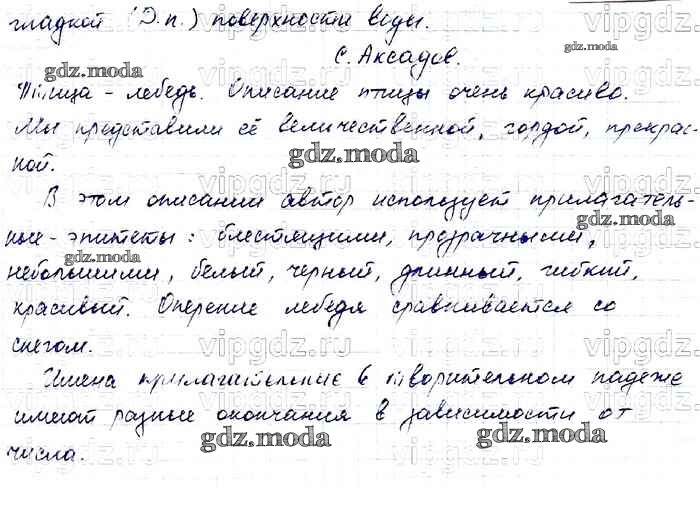 гладкой (Д.п.) поверхности воды.
С. Аксадов.
Птица - лебедь. Описание птицы очень красиво.
Мы представили её величественной, гордой, прекрас-
ной.
В этом описании автор использует прилагатель-
ные - эпитеты: блестящими, прозрачными,
небольшими, белый, черный, длинный, гибкий,
красивый. Оперение лебедя сравнивается со
снегом.
Имена прилагательные в творительном падеже
имеют разные окончания в зависимости от
числа.
vipgdz.ru
gdz.moda